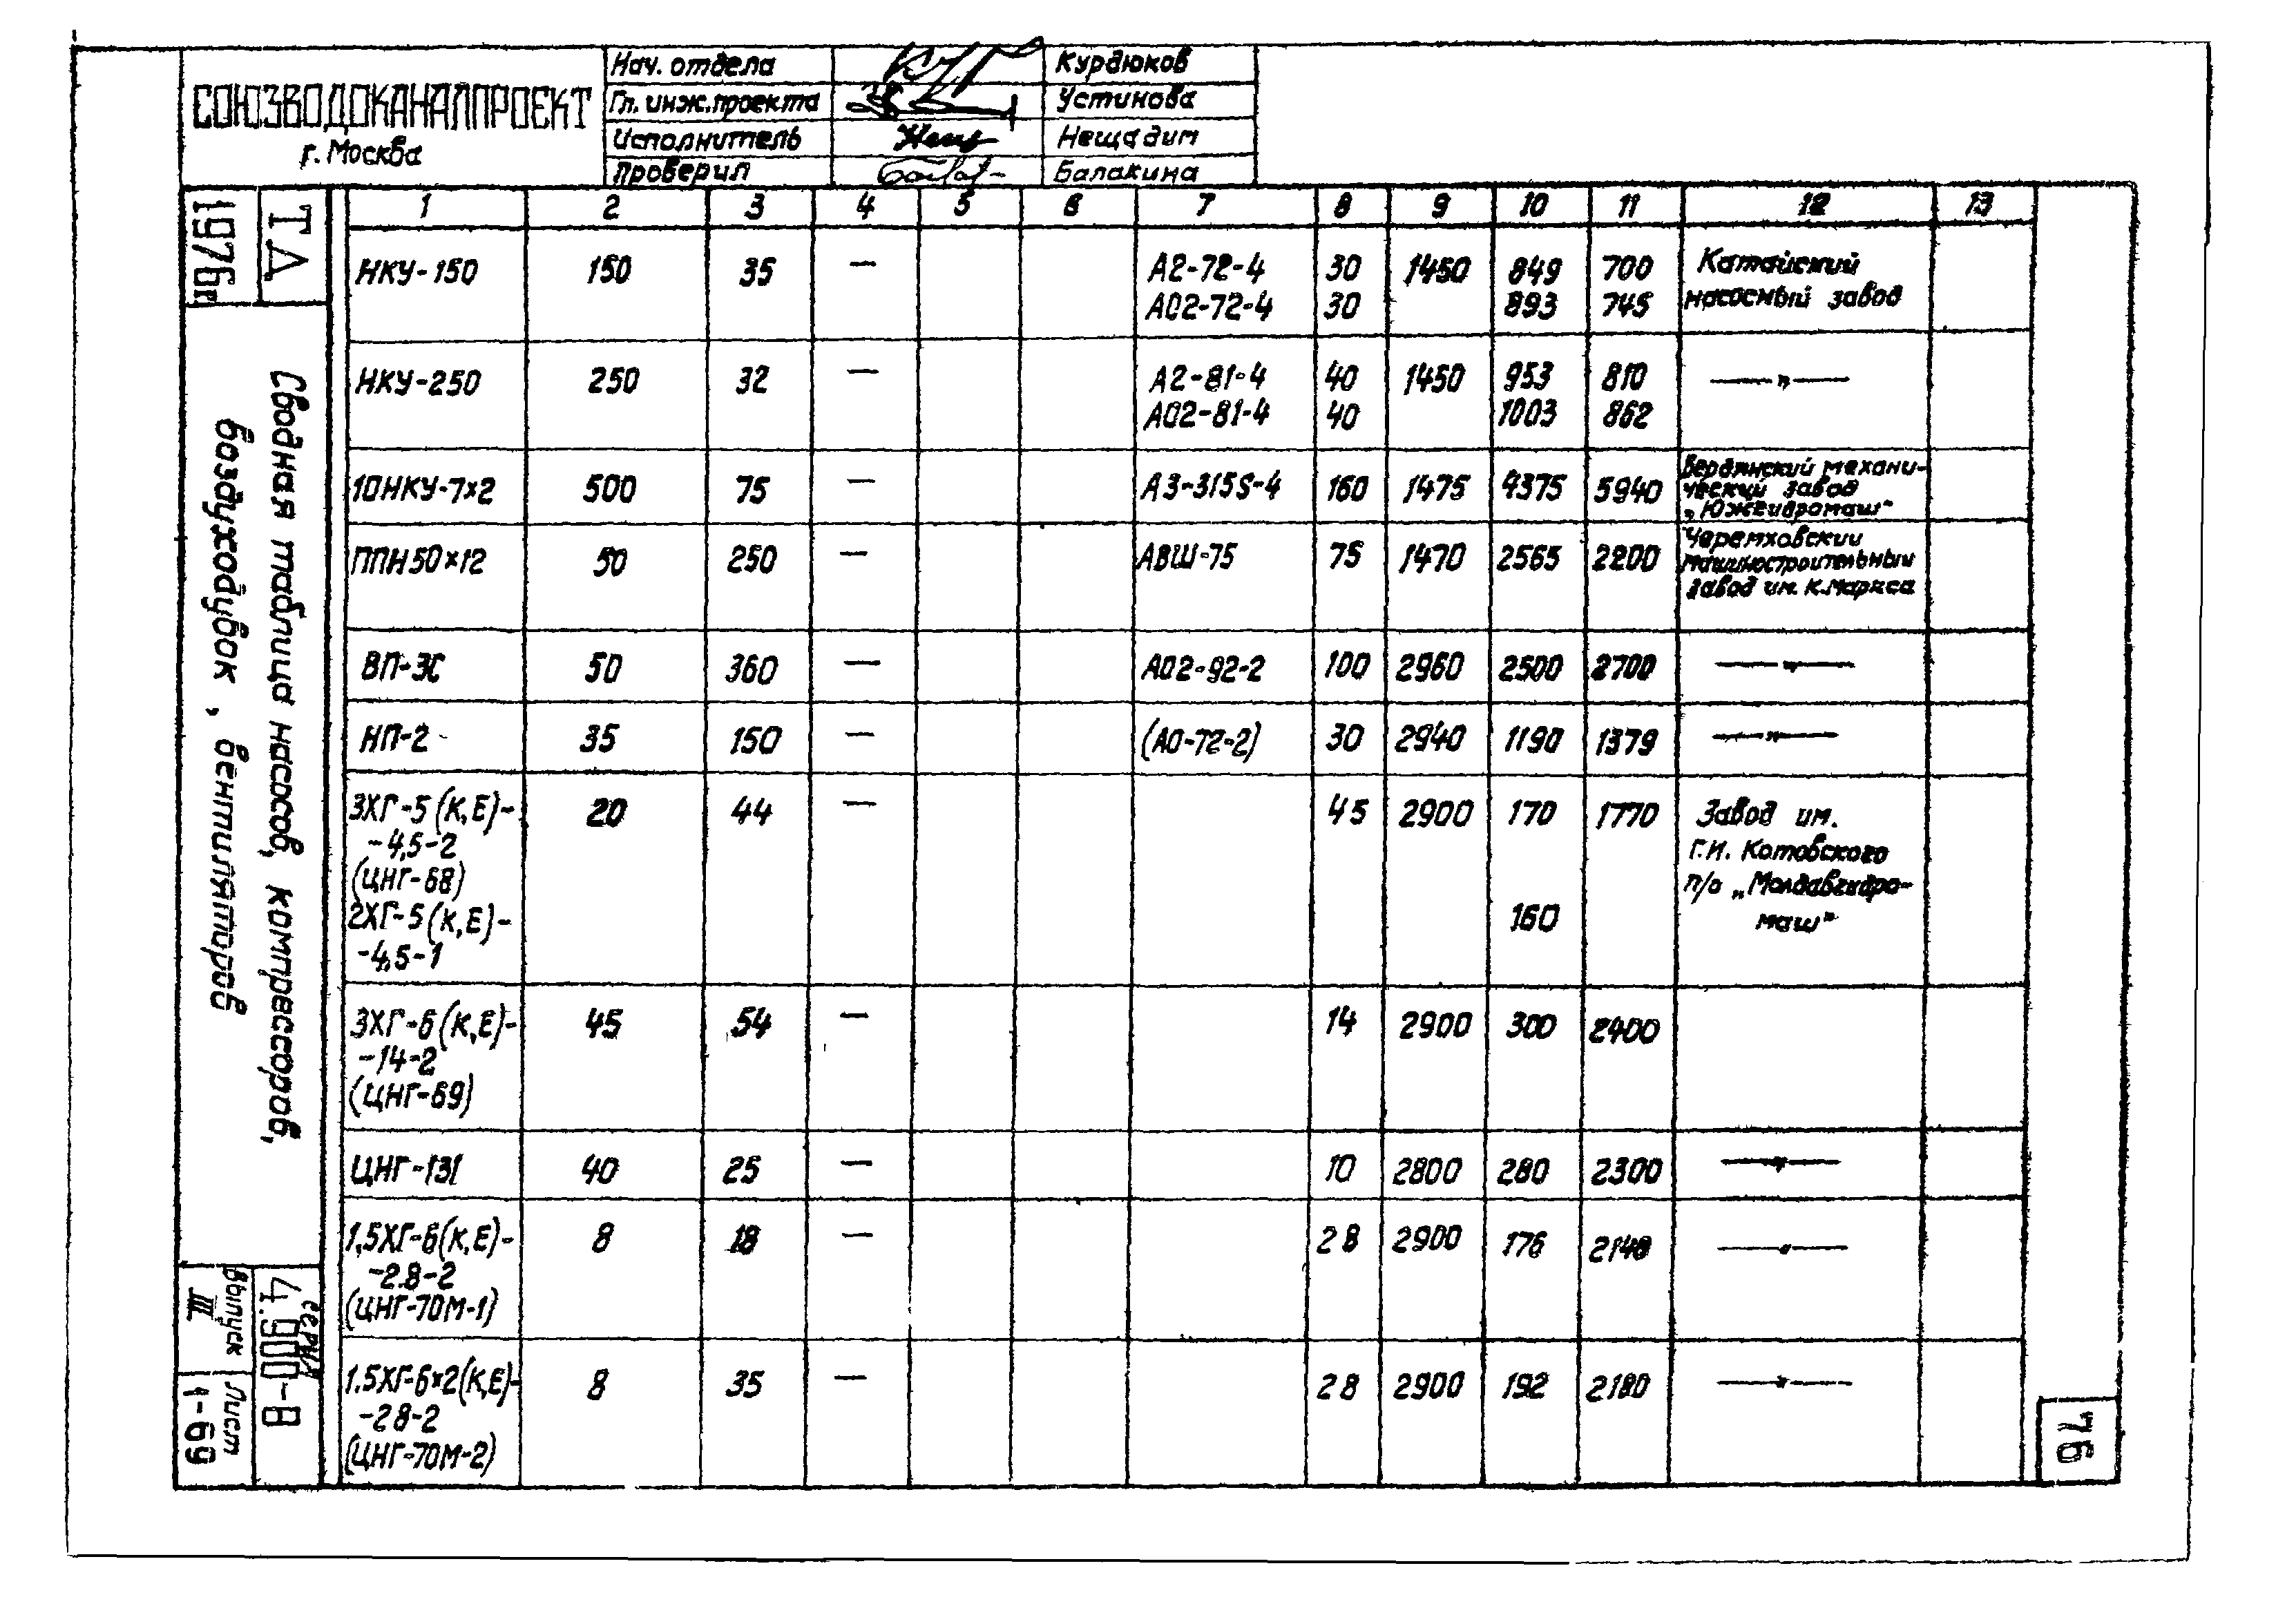 СОЮЗВОДОКАНАЛПРОЕКТ
г. Москва
Нач. отдела Курдюков
Гл. инж. проекта Устинова
Исполнитель Нещадим
Проверил Балакина
1976г
ТД
Сводная таблица насосов, компрессоров,
воздуходувок, вентиляторов
серия
4.900-8
Выпуск
III
Лист
1-69
1 2 3 4 5 6 7 8 9 10 11 12 13
НКУ-150 150 35 — А2-72-4 30 1450 849 700 Катайский
АО2-72-4 30 893 745 насосный завод
НКУ-250 250 32 — А2-81-4 40 1450 953 810 —„—
АО2-81-4 40 1003 862
10НКУ-7х2 500 75 — А3-315S-4 160 1475 4375 5940 Бердянский механи-
ческий завод
„Южгидромаш"
ППН50х12 50 250 — АВШ-75 75 1470 2565 2200 Черемховский
машиностроительный
завод им. К.Маркса
ВП-3С 50 360 — АО2-92-2 100 2960 2500 2700 —„—
НП-2 35 150 — (АО-72-2) 30 2940 1190 1379 —„—
3ХГ-5(К,Е)- 20 44 — 45 2900 170 1770 Завод им.
-4,5-2 Г.И. Котовского
(ЦНГ-68) п/о „Молдавгидро-
2ХГ-5(К,Е)- 160 маш"
-4,5-1
3ХГ-6(К,Е)- 45 54 — 14 2900 300 2400
-14-2
(ЦНГ-69)
ЦНГ-131 40 25 — 10 2800 280 2300 —„—
1,5ХГ-6(К,Е)- 8 18 — 28 2900 176 2140 —„—
-2.8-2
(ЦНГ-70М-1)
1.5ХГ-6х2(К,Е)- 8 35 — 28 2900 192 2180 —„—
-28-2
(ЦНГ-70М-2)
76